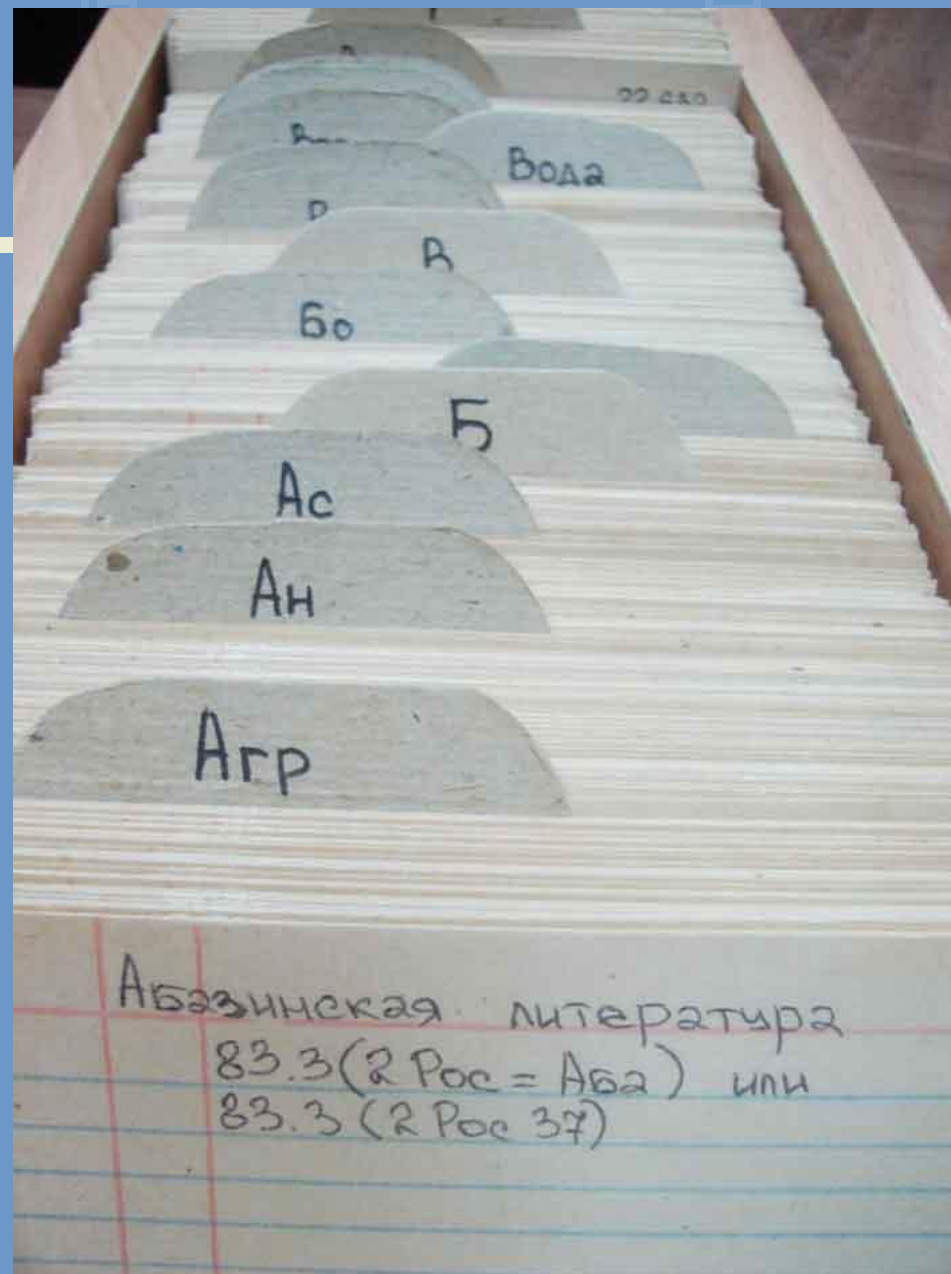 Вода
В
Бо
Б
Ас
Ан
Агр
Абазинская литература
83.3(2 Рос = Аба) или
83.3 (2 Рос 37)